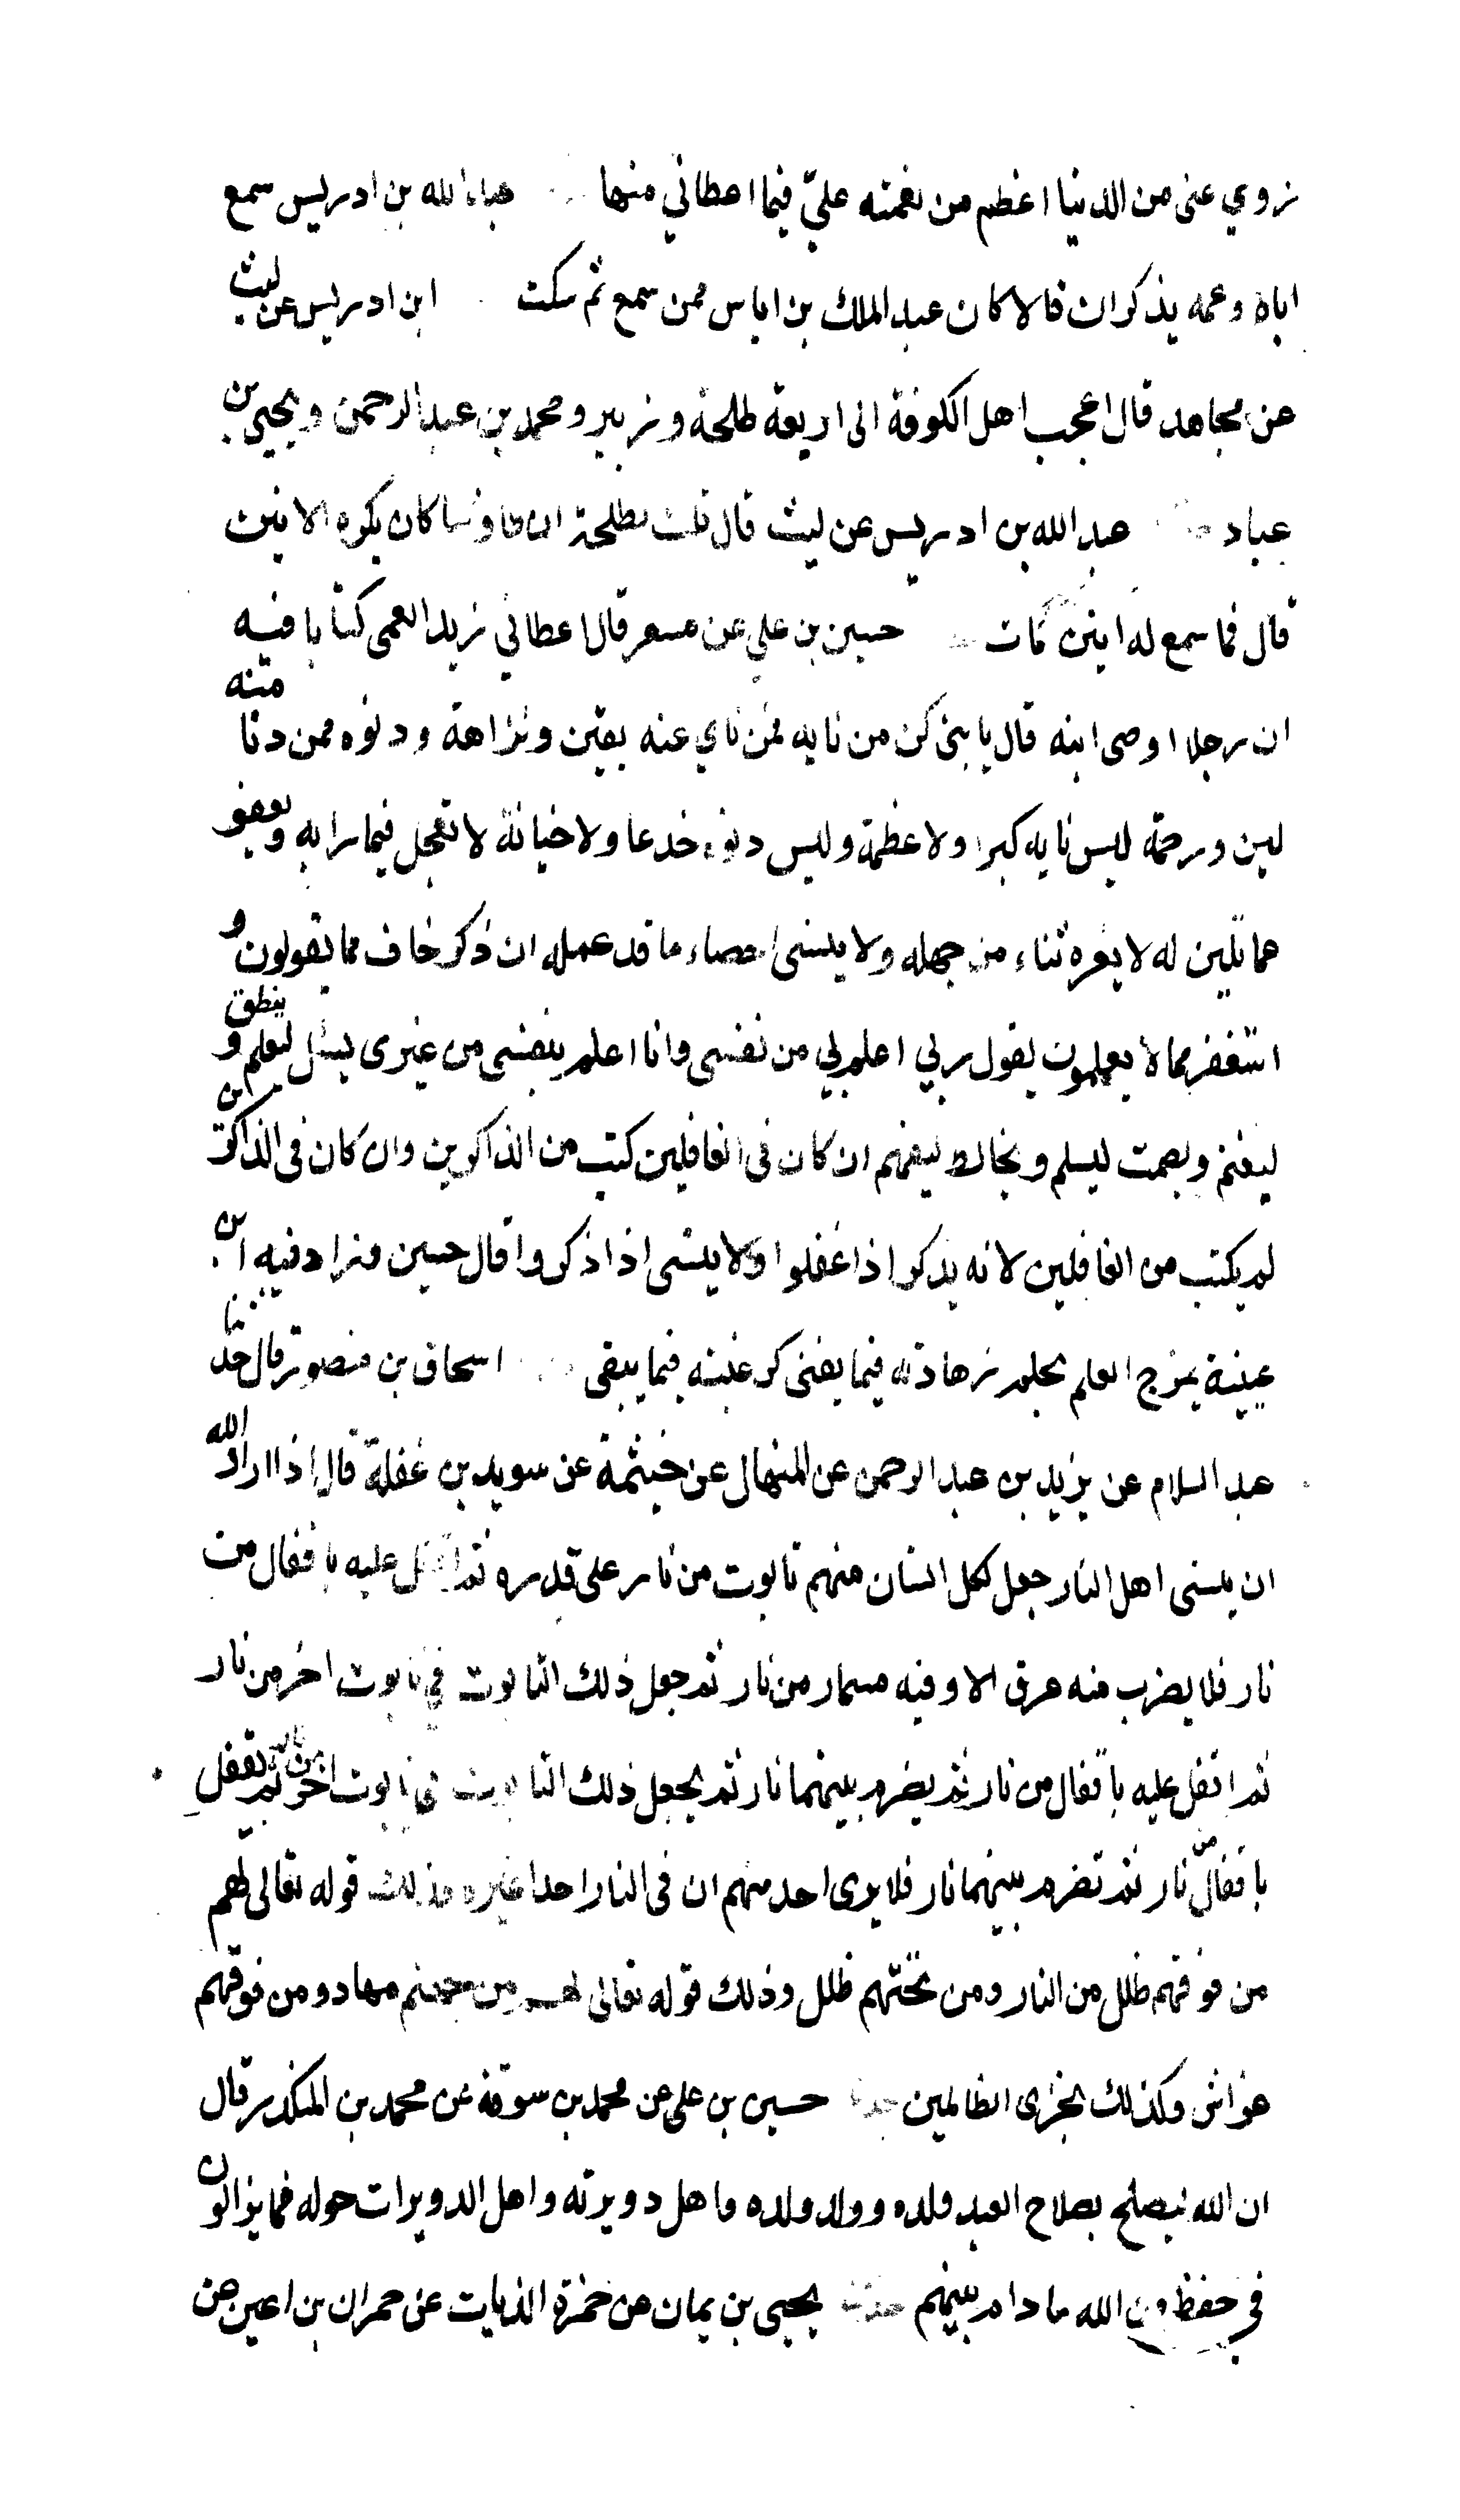 زوي عني من الدنيا اعظم من نعمته عليّ فيما اعطاني منها عبد الله بن ادريس سمع
اباه وعمه يذكران قالا كان عبد الملك بن اياس ممن سمع ثم سكت ابن ادريس عن ليث
عن مجاهد قال اعجب اهل الكوفة الى اربعة طلحة وزبير ومحمد بن عبد الرحمن ويحيى بن
عباد عبد الله بن ادريس عن ليث قال قلت لطلحة ان طاوسا كان يكره الانين
قال فما سمع له انين مات حسين بن علي عن مسعر قال اعطاني زيد العمى كتابا فيه
ان رجلا اوصى ابنه قال يا بني كن من نايه ممن ناي عنه يقين ونزاهة ودنوه ممن دنا منه
لين ورحمة ليس نايه كبرا ولا عظمة وليس دنوه خدعا ولا خيانة لا تعجل فيما رابه ويعفو
عما تبين له لا يغره ثناء من جهله ولا ينسى احصاء ما قد عمله ان ذكر خاف مما يقولون و
استغفر مما لا يعلمون يقول ربي اعلم بي من نفسي وانا اعلم بنفسي من غيري يسئل ليعلم وينطق
ليغنم ويصمت ليسلم ويخالط ليفهم ان كان في الغافلين كتب من الذاكرين وان كان في الذاكرين
لم يكتب من الغافلين لانه يذكر اذا غفلوا ولا ينسى اذا ذكروا قال حسين وزاد فيه ابن
عيينة يمزج العلم بحلم زهادته فيما يفنى كرغبته فيما يبقى اسحاق بن منصور قال حدثنا
عبد السلام عن يزيد بن عبد الرحمن عن المنهال عن خيثمة عن سويد بن غفلة قال اذا اراد الله
ان ينسى اهل النار جعل لكل انسان منهم تابوت من نار على قدره ثم اقفل عليه باقفال من
نار فلا يضرب منه عرق الا وفيه مسمار من نار ثم جعل ذلك التابوت في تابوت اخر من نار
ثم اقفل عليه باقفال من نار ثم يضرم بينهما نار ثم يجعل ذلك التابوت في تابوت اخر من نار ثم يقفل
باقفال من نار ثم تضرم بينهما نار فلا يرى احد منهم ان في النار احدا غيره فذلك قوله تعالى لهم
من فوقهم ظلل من النار ومن تحتهم ظلل وذلك قوله تعالى لهم من جهنم مهاد ومن فوقهم
غواش وكذلك نجزى الظالمين حدثنا حسين بن علي عن محمد بن سوقة عن محمد بن المنكدر قال
ان الله ليصلح بصلاح العبد ولده وولد ولده واهل دويرته واهل الدويرات حوله فما يزالون
في حفظ من الله ما دام بينهم حدثنا يحيى بن يمان عن حمزة الزيات عن حمران بن اعين عن